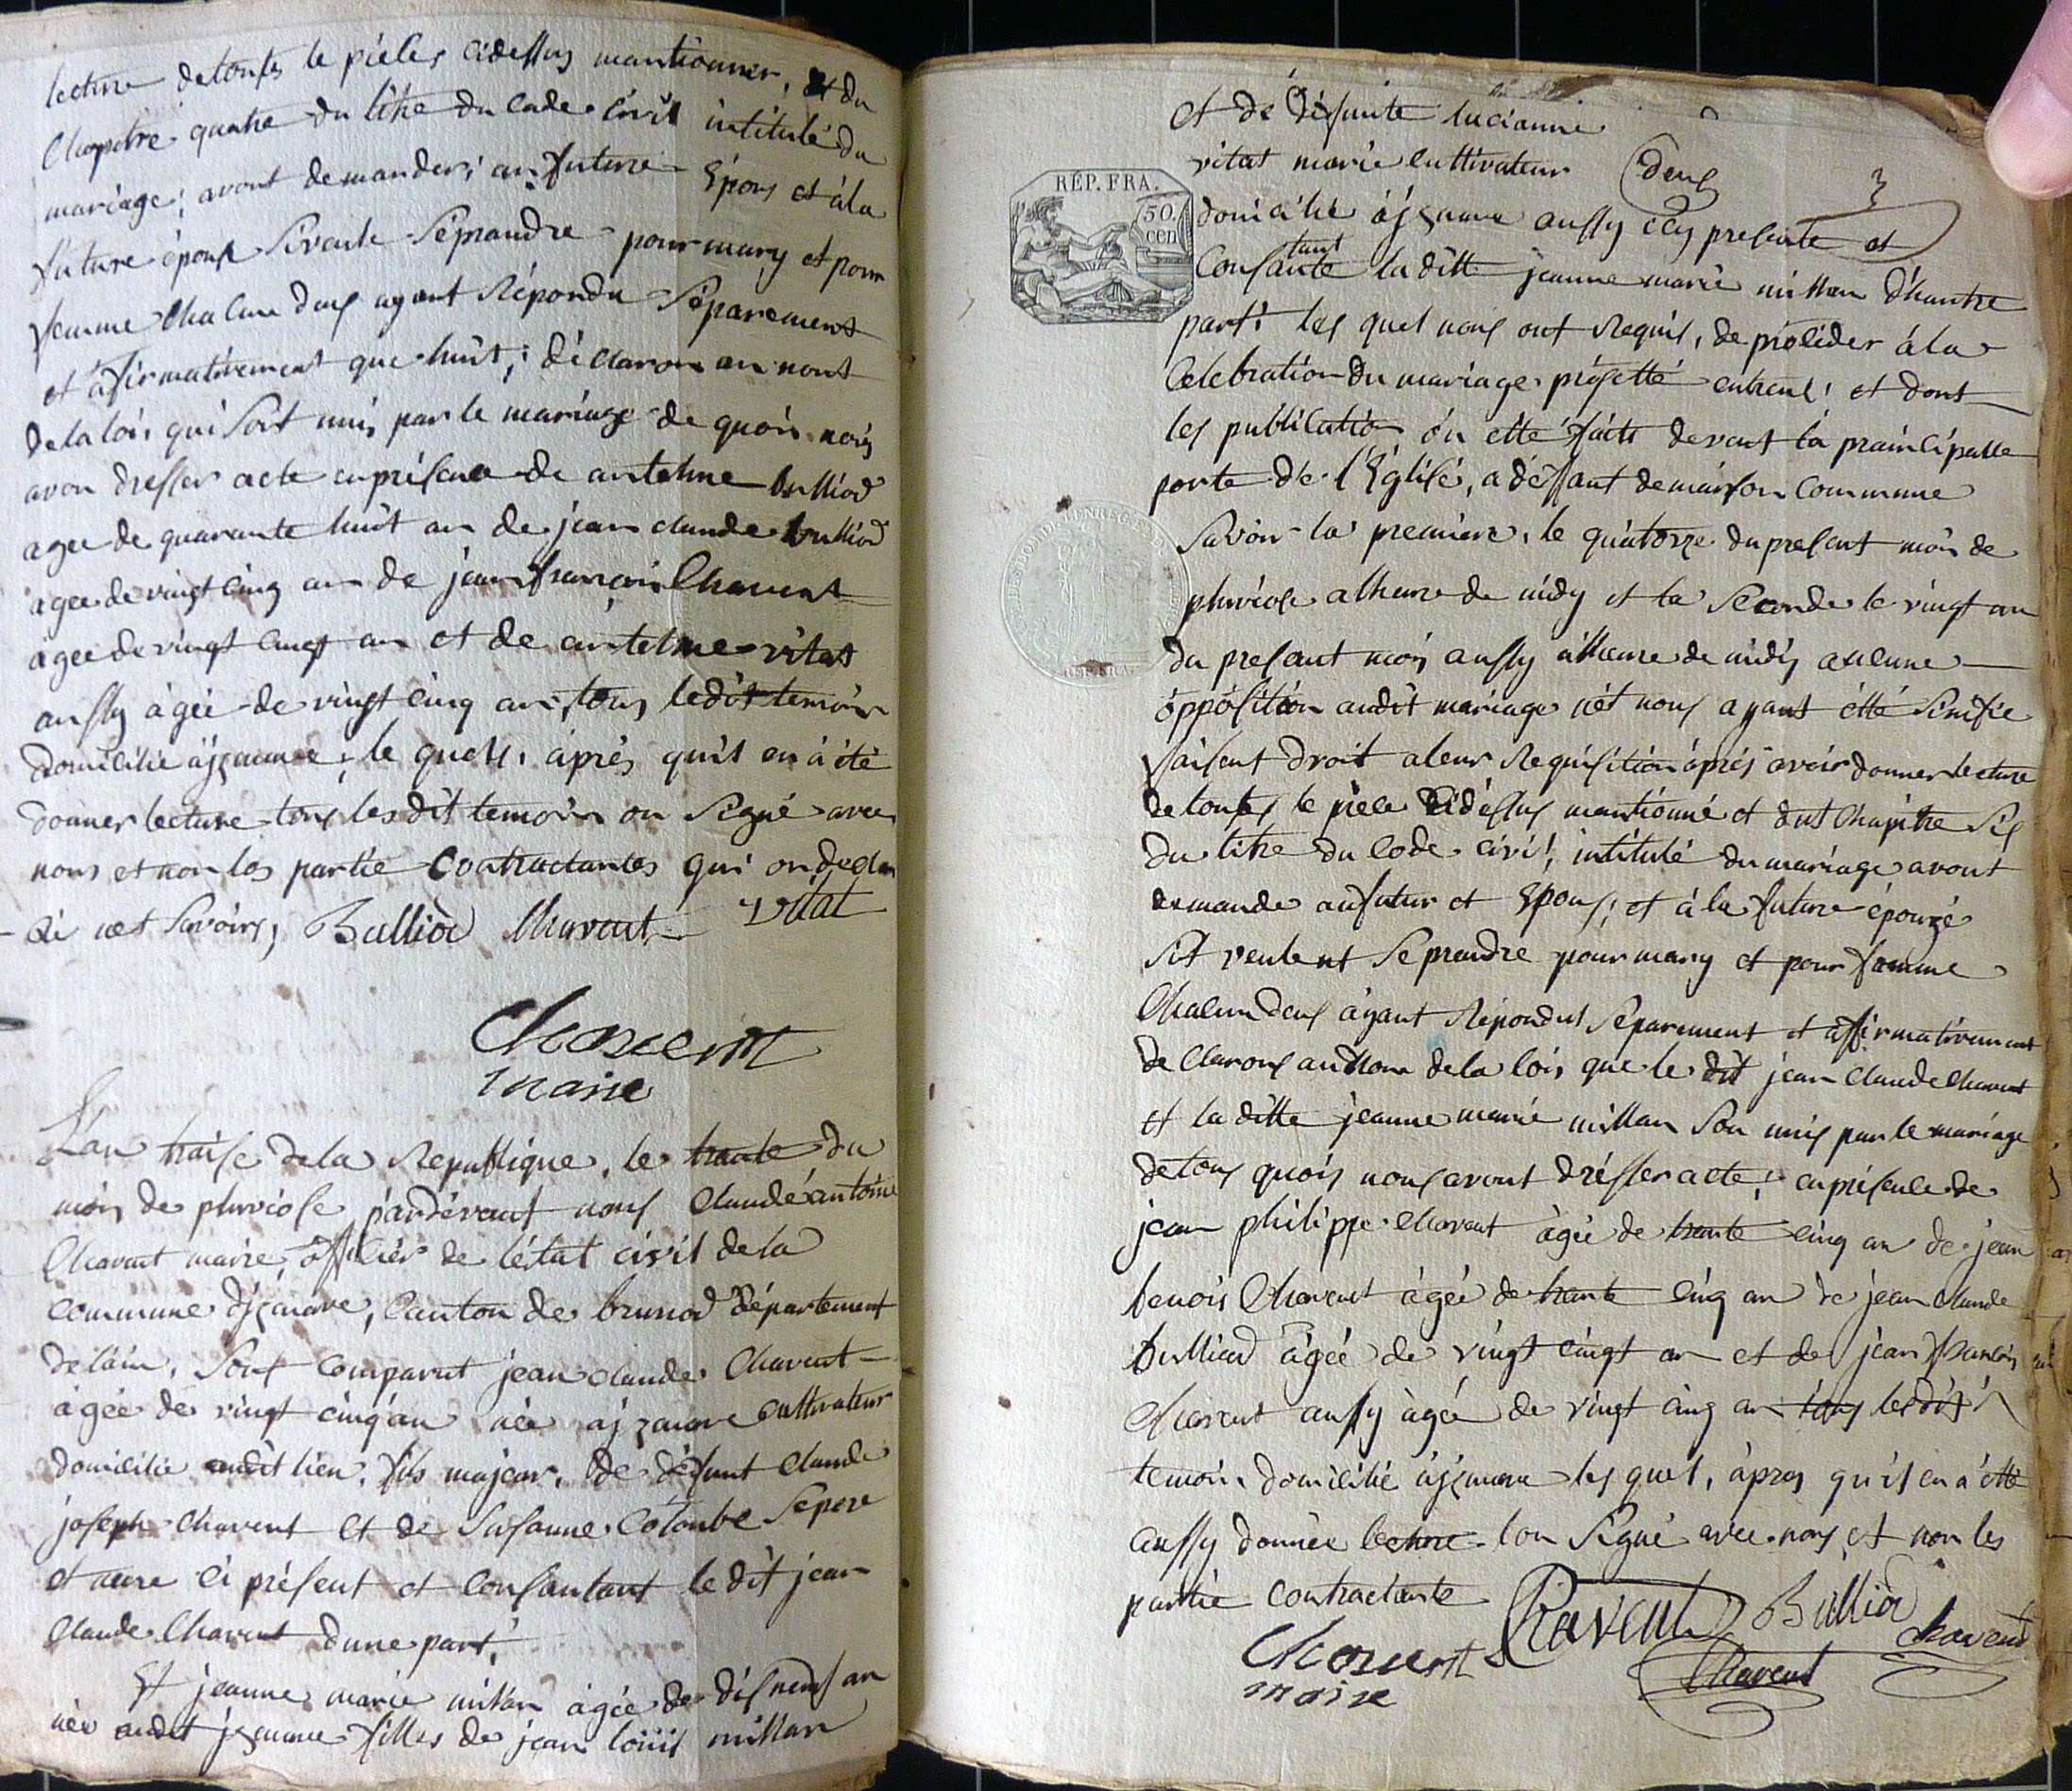 lecture de toutes le pieces cidessus mantionner, et du
Chapitre quatre du titre du Code Civil intitulé du
mariage; avont demander; au future Epous et à la
future épouse si veule se prandre pour mary et pour
femme chacune deus ayant répondu séparement
et afirmativement que huit; déclaron au nont
de la loi, qui sont unis par le mariage de quoi nous
avon dresser acte en présence de antelme bulliod
agee de quarante huit an de jean claude bulliod
agee de vingt cinq an de jean françoi Chavent
agee de vingt cinqt an et de antelme vitat
aussy agée de vingt cinq an, tous ledit temoin
domicilié ajzenave, le quels, après quil en à été
donner lecture tous lesdit temoin on signé avec
nous et non los partie contractantes qui on decla
ré net savoir; Bulliod Chavent Vitat
Chavent
maire
Lan traise de la Republique, le trante du
mois de pluviose pardevant nous Claude antoine
Chavent maire, officier de létat civil de la
commune djzenave, Canton de brenod département
de lain, sont comparut jean claude Chavent
àgée de vingt cinq an née ajzenave cultivateur
domicilié audit lieu, fils majeur, de défunt claude
joseph chavent et de Susanne Colombe se pere
et mere ci présent et consantant le dit jean
claude Chavent dune part,
Et jeanne marie millan agée de disneuf an
née audit jzenave filles de jean louis millan
et de défunte lucianne
vitat marie cultivateur
deus
domicilié àjzenave aussy icy presente et
tant
Consante la ditte jeanne marie millan dhautre
part; les quel nous ont requis, de proceder à la
Celebration du mariage projetté entreus; et dont
les publication on etté faite devant la praincipalle
porte de l'Eglise, a deffaut de maison commune
Savoir la premiere, le quatorze du presant mois de
pluviose alheure de midy et la seconde le vingt un
du presant mois aussy alheure de midy aucune
oppósition audit mariage nét nous ayant étté sinifie
faisent droit aleur requisition après avoir donner lecture
de toutes le piece cidessus mantionné et dut chapitre sis
du titre du Code civil, intitulé du mariage avont
demande au futur et Epous; et à la future épouze
sit veulent se prandre pour mary et pour famme
Chacun deus ayant répondus séparement et affirmativemant
declarons au nom de la loi, que le dit jean claude chavent
et la ditte jeanne marie millan son unis par le mariage
de tous quois nous avont drésser acte; en présence de
jean philippe chavent àgée de trante cinq an de jean
benois Chavent àgée de trante cinq an de jean claude
bulliod àgée de vingt cinqt an et de jean francois
chavent aussy àgée de vingt cinq an tous lesdit
temoin domicilié àjzenave les quel, àpres quil en a étté
aussy donnée lecture lon signé avec nous et non les
partie contractante Chavent Bulliod
Chavent Chavent Chavent
maire
RÉP. FRA.
50.
cen